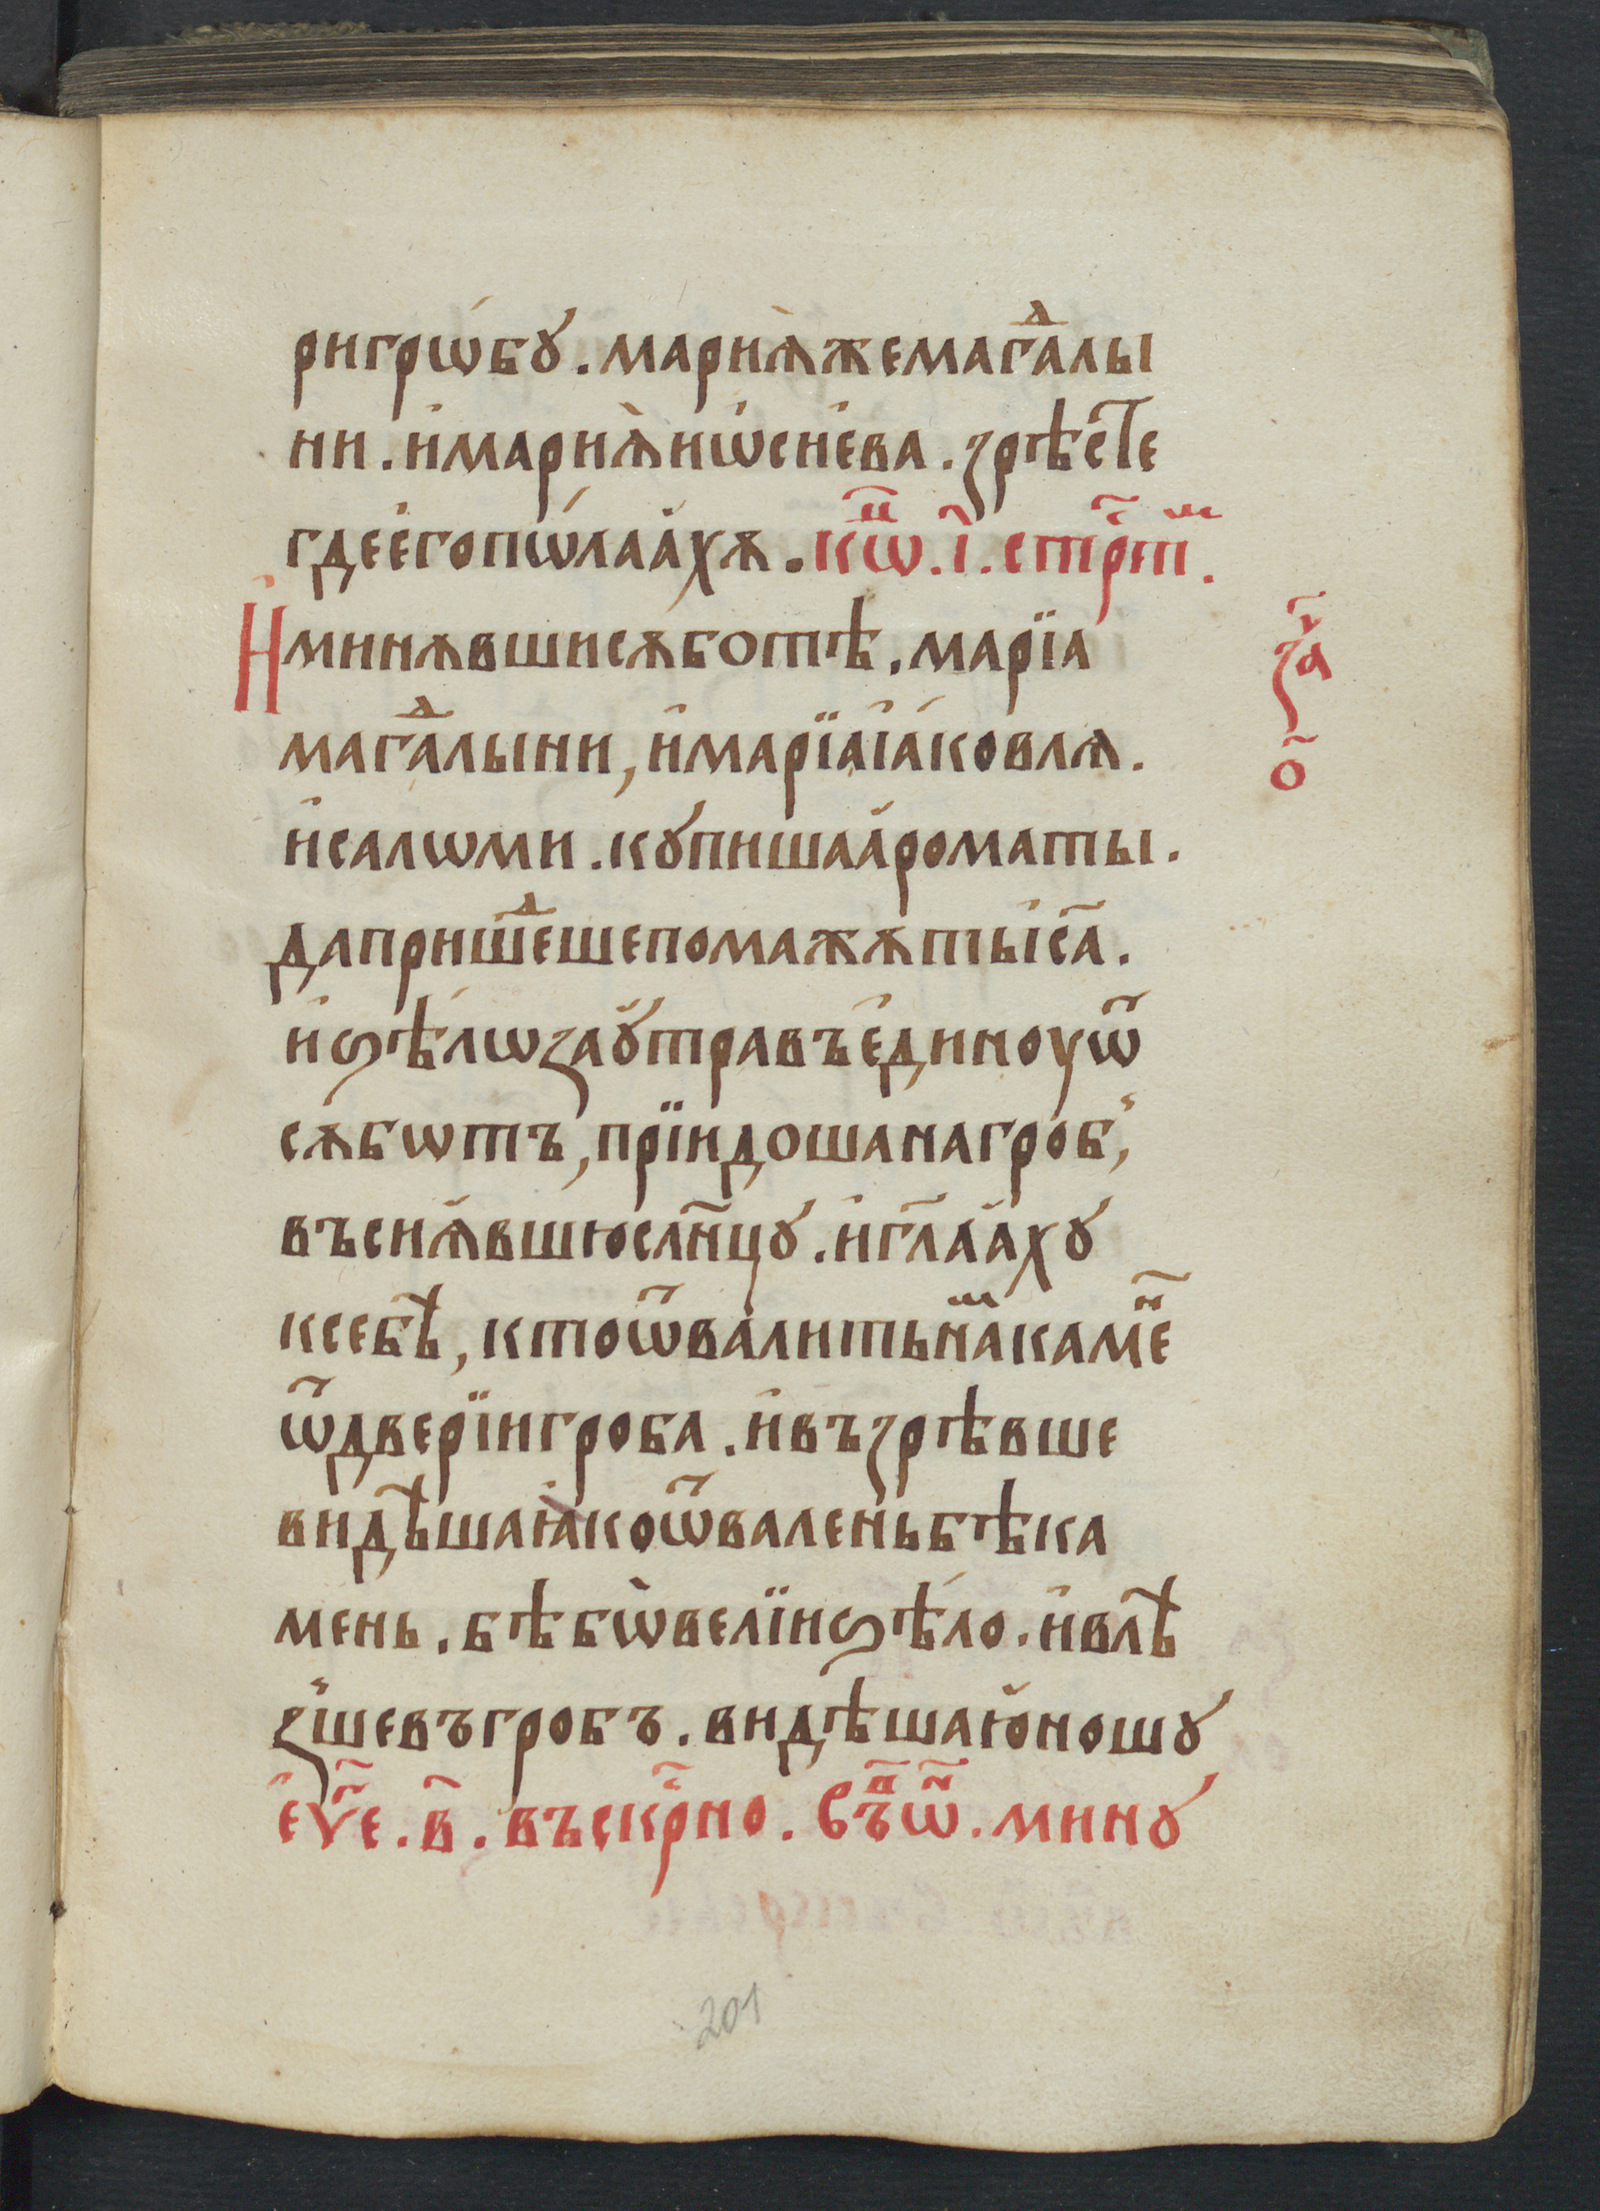 ригрѡ́бꙋ . марнѧ̀жемагⷣалы
ни . и҆марнѧ̀ни҆ѡсне́ва . зрѣсте
гдее҆гопѡ́лаа҆хѫ . кѡⷩ҇ . і҃ . стрⷭ҇тⷨ .
И҆минѫвшисѫботѣ . марїа
за҃ч
магⷣалыни , и҆марїаі҆а́ковлѧ .
о҃
и҆салѡми . кꙋпишаа҆роматы .
даприше́ⷣшепомажѫтьі҆са҃ .
и҆ѕѣ́лѡзаꙋ҆травъе҆диноуѿ
сѫбѡтъ , прїидошанагробꙿ ,
въсиѧ҆вшюсл҃нцꙋ . и҆гл҃аа҆хꙋ
ксебѣ̀ , ктоѿвали́тьна́ⷨкаме́ⷩ҇
ѿдверїигроба . и҆възрѣвше
видѣ̀шаꙗ҆коѿвале́ньбѣка
мень . бѣбѡ̀велїиѕѣ́ло . и҆влѣ̀
зꙿшевъгробъ . видѣшаю҆ношꙋ
е҆ѵ҃е . в҃ . въскрⷭ҇но . Въⷩ҇ѿⷩ҇ . минꙋ
201